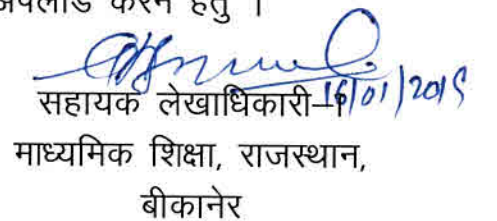 अपलोड करने हेतु ।
16/01/2019
सहायक लेखाधिकारी–I
माध्यमिक शिक्षा, राजस्थान,
बीकानेर